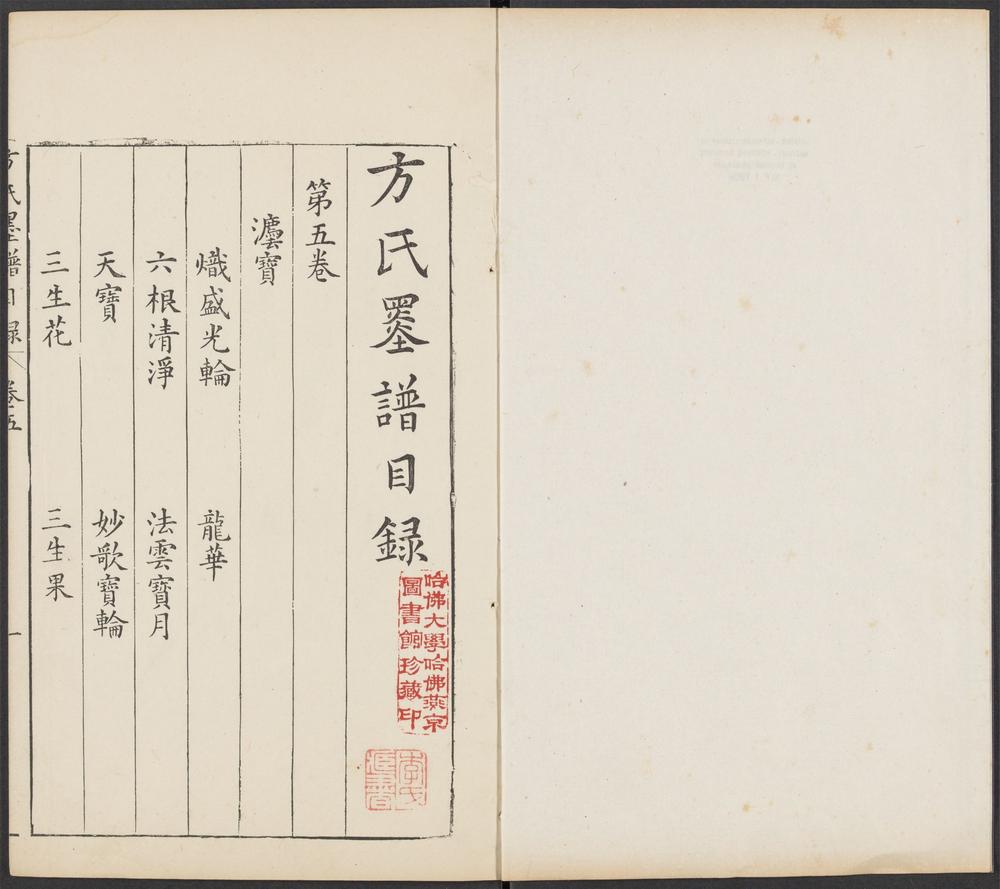 方氏墨譜目録
第五卷
灋寶
熾盛光輪 龍華
六根清淨 法雲寶月
天寶 妙歌寶輪
三生花 三生果
方氏墨譜目録 卷五 一
哈佛大學哈佛燕京
圖書館珍藏印